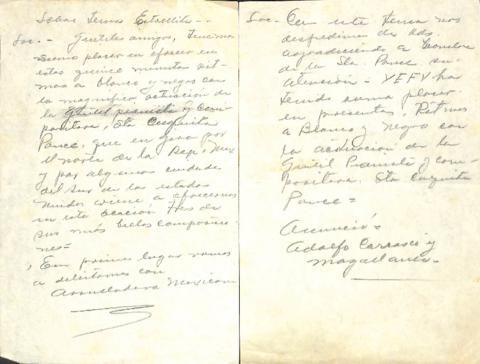 Sobre Tema Estrellita -
Loc. - Gentiles amigos, tenemos
sumo placer en ofrecer en
estos quince minutos rit-
mos a blanco y negro con
la magnifica actuación de
la gentil pianista y com-
positora, Sta Cuquita
Ponce, que en gira por
el norte de la Rep. Mex
y por algunas ciudades
del Sur en los estados
Unidos viene a ofrecernos
en esta ocasión tres de
sus más bellas composicio-
nes=
En primer lugar vamos
a deleitarnos con
Arrulladora Mexicana
Loc - Con este tema nos
despedimos de Uds.
agradeciendo a nombre
de la Sta Ponce su
atención - XEFV ha
tenido suma placer
en presentar, Ritmos
a Blanco y Negro con
la actuación de la
Gentil Pianista y com-
positora. Sta Cuquita
Ponce=
Anunció=
Adolfo Carrasco y
Magallanes-